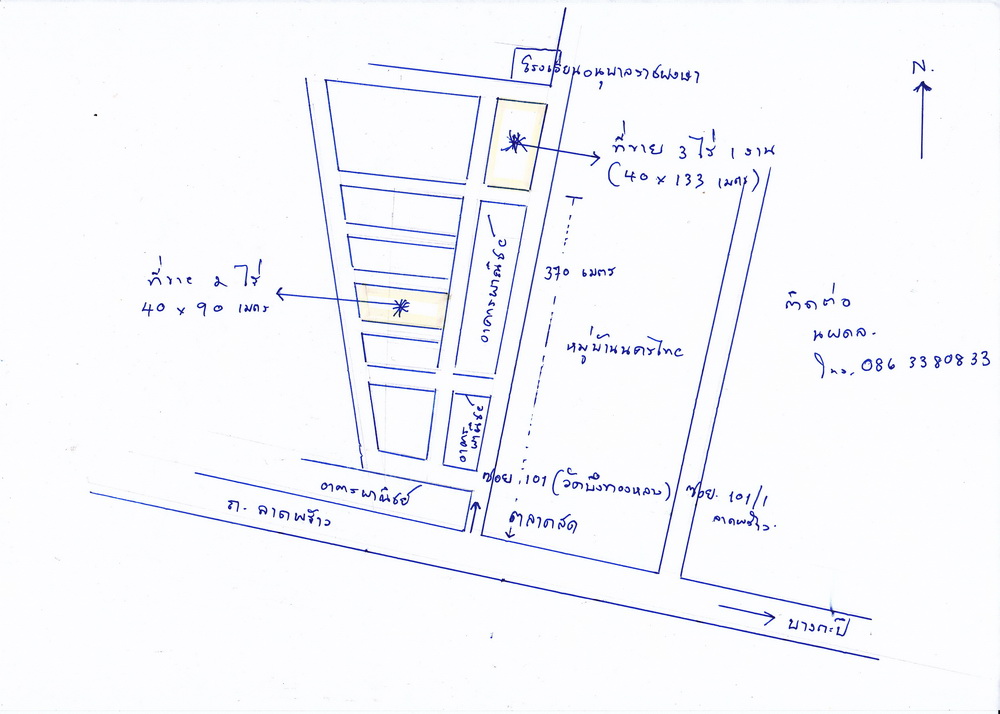 โรงเรียนอนุบาลราชพงษา
N.
ที่ขาย 3 ไร่ 1 งาน
(40 x 133 เมตร)
อาคารพาณิชย์
370 เมตร
ที่ขาย 2 ไร่
40 x 90 เมตร
ติดต่อ
นพดล.
โทร. 086 3380833
หมู่บ้านนครไทย
อาคาร
พาณิชย์
ซอย. 101 (วัดบึงทองหลาง)
ซอย. 101/1
ลาดพร้าว.
อาคารพาณิชย์
ถ. ลาดพร้าว
ตลาดสด
บางกะปิ